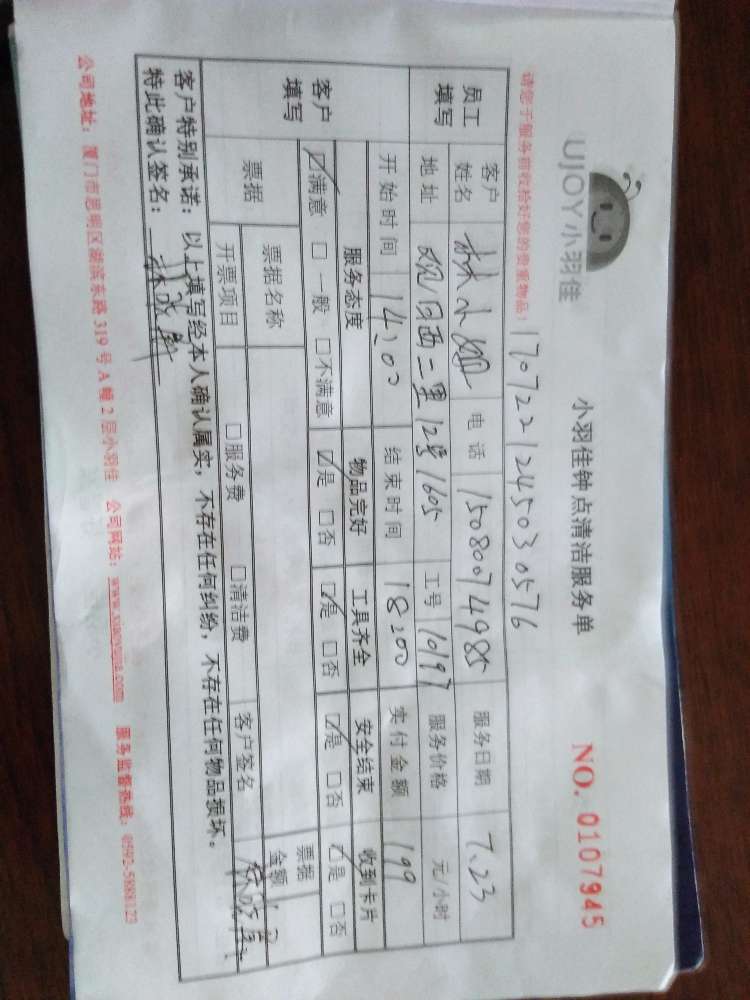 UJOY小羽佳
小羽佳钟点清洁服务单
NO. 0107945
请您于服务前收拾好您的贵重物品！
170722124503 0576
员工填写 客户姓名 林小姐 电话 15080074985 服务日期 7.23
地址 观日西二里12号1605 工号 10197 服务价格 元/小时
开始时间 14:00 结束时间 18:00 实付金额 199
客户填写 服务态度 物品完好 工具齐全 安全结束 收到卡片
☑满意 □一般 □不满意 ☑是 □否 ☑是 □否 ☑是 □否 ☑是 □否
票据 票据名称 票据金额
开票项目 □服务费 □清洁费 客户签名
客户特别承诺：以上填写经本人确认属实，不存在任何纠纷，不存在任何物品损坏。
特此确认签名：
公司地址：厦门市思明区湖滨东路319号A幢2层小羽佳 公司网站：www.xiaoyujia.com 服务监督热线：0592-5888123